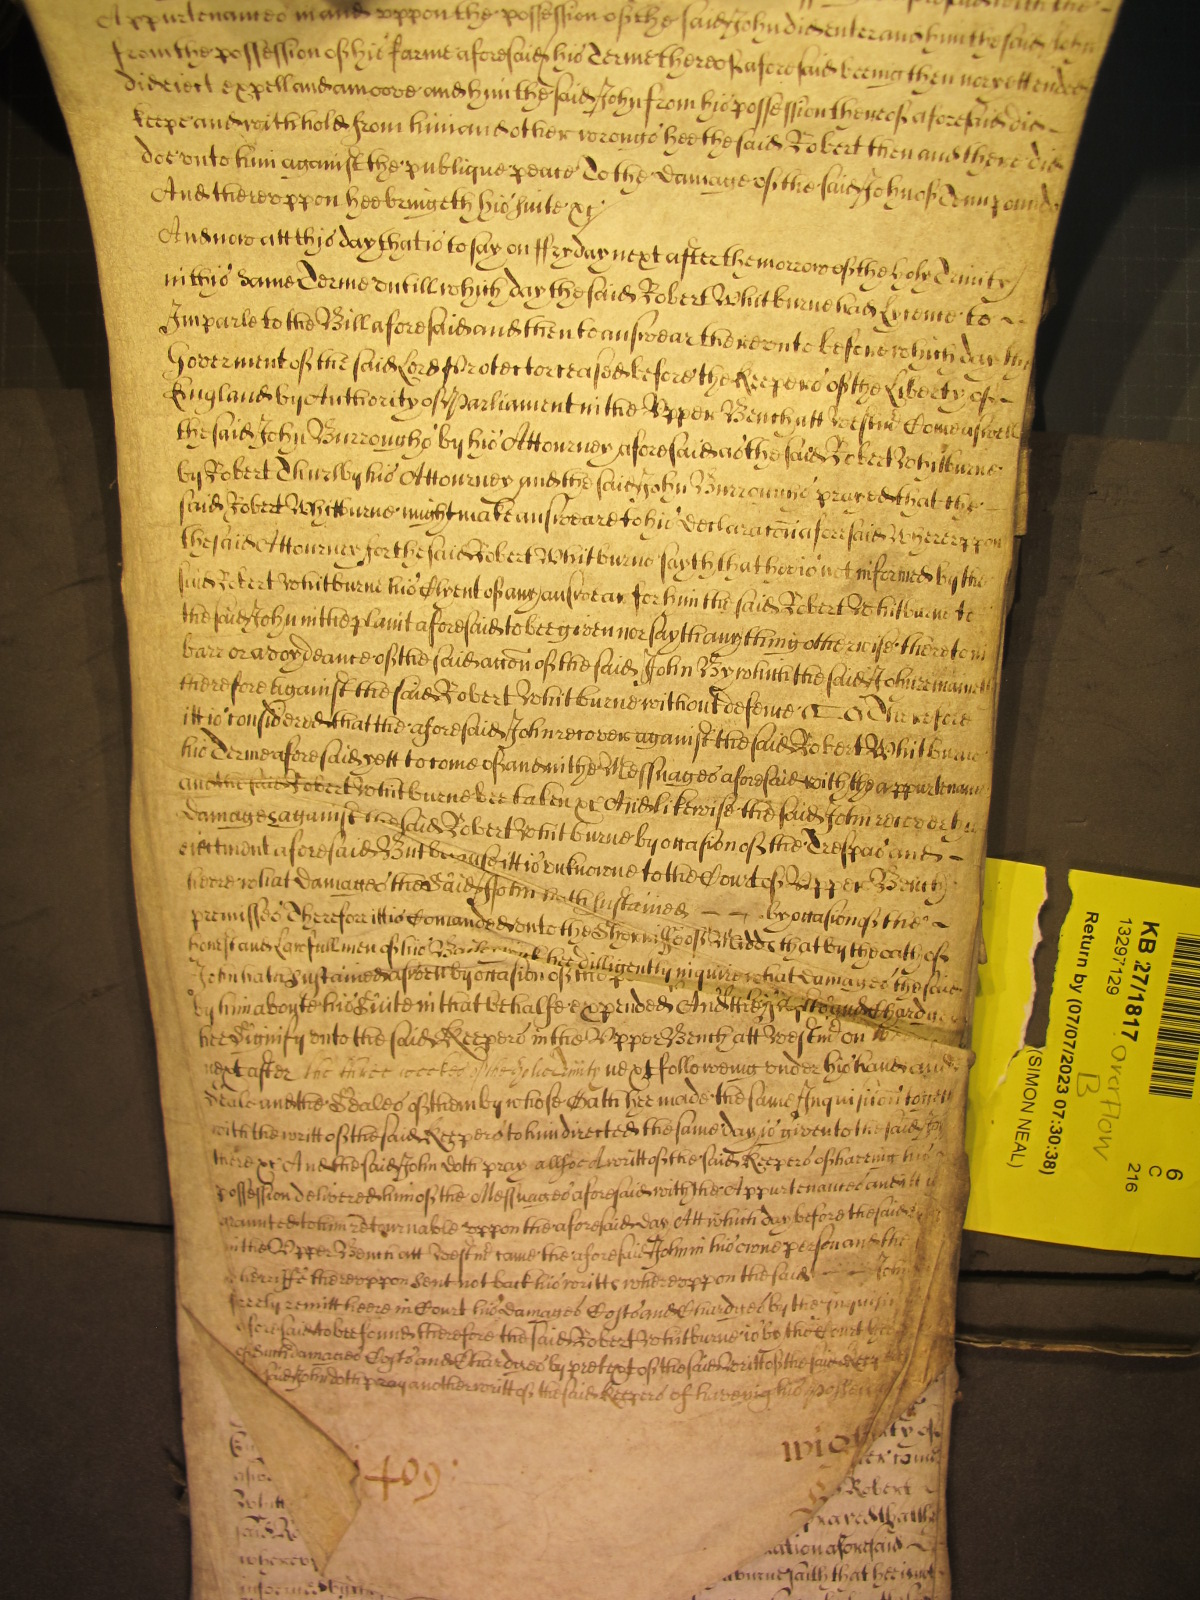 Appurtenances in and uppon the possession of the said John did enter and him the said John
from the possession of his farme aforesaid his Terme thereof aforesaid beeing then nor yett ended
did eiect expell and amoove and him the said John from his possession thereof aforesaid did
keepe and withhold from him and other wrongs hee the said Robert then and there did
doe unto him against the publique peace To the damage of the said John of Tenn pounds
And thereuppon hee bringeth his suite &c
And now att this day that is to say on ffryday next after the morrow of the holy Trinity
in this same Terme untill which day the said Robert Whitburne had Lycence to
Imparle to the Bill aforesaid and then to answear thereunto before which day the
Goverment of the said Lord Protector ceased before the Keepers of the Liberty of
England by Authority of Parliament in the Upper Bench att Westmr Come aswell
the said John Burroughs by his Attourney aforesaid as the said Robert Whitburne
by Robert Thurlby his Attourney and the said John Burroughs prayed that the
said Robert Whitburne might make answeare to his declaracon aforesaid Whereuppon
the said Attourney for the said Robert Whitburne sayth that hee is not informed by the
said Robert Whitburne his Clyent of any answear for him the said Robert Whitburne to
the said John in the plaint aforesaid to bee given nor sayth any thing otherwise thereto in
barr or avoydeance of the said accon of the said John By which the said John remaineth
therefore against the said Robert Whitburne without defence &c Therefore
itt is considered that the aforesaid John recover against the said Robert Whitburne
his Terme aforesaid yett to come of and in the Messuages aforesaid with the appurtenances
and the said Robert Whitburne bee taken &c And likewise the said John recover his
damages against the said Robert Whitburne by occasion of the Trespas and
eiectment aforesaid But because itt is unknowne to the Court of Upper Bench
heere what damages the said John hath sustained by occasion of the
premisses Therefore itt is Comanded unto the Sherriffe of Midds that by the oath of
honest and Lawfull men of his Baylywick hee dilligently inquire what damages the said
John hath sustained aswell by occasion of the
by him aboute his Suite in that behalfe expended And the
hee Signify unto the said Keepers in the Upper Bench att Westmr on
next after the three weekes of the holy Trinity next following under his hand and
Seale and the Seales of them by whose Oath hee made the same Inquisicion togeth
with the writt of the said Keepers to him directed the same day is given to the said John
there &c And the said John doth pray allsoe A writt of the said Keepers of haveing his
possession delivered him of the Messuages aforesaid with the Appurtenances and itt is
graunted to him returnable uppon the aforesaid day Att which day before the said
in the Upper Bench att Westmr came the aforesaid John in his owne person and the
Sherriffe thereuppon sent not back his writts whereuppon the said John
freely remitt heere in Court his damages Costs and Chardges by the Inquisi
aforesaid to bee found therefore the said Robert Whitburne is by the Court
of such damages Costs and Chardges by pretext of the said writt of the said Keepers
said John doth pray another writt of the said Keepers of haveing his possession
409:
Robert
prayed that the
ation aforesaid
tburne saith that hee is not
Whitt
said Ro
whereu
informed by the
KB 27/1817
13297129
Overflow
B
Return by (07/07/2023 07:30:38)
(SIMON NEAL)
6
C
216